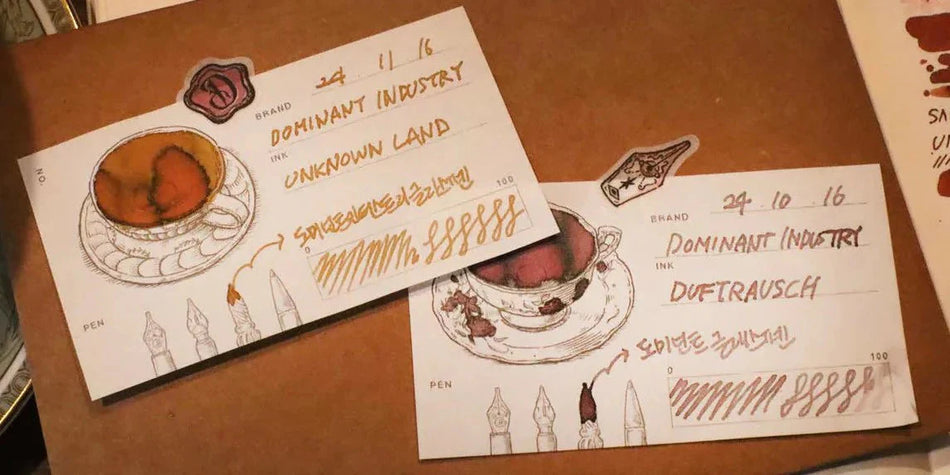 NO
24 . 11 . 16
BRAND
DOMINANT INDUSTRY
INK
UNKNOWN LAND
도미넌트인더스트리글라스펜
0 100
PEN
24 . 10 . 16
BRAND
DOMINANT INDUSTRY
INK
DUFTRAUSCH
도미넌트 글래스펜
0 100
PEN